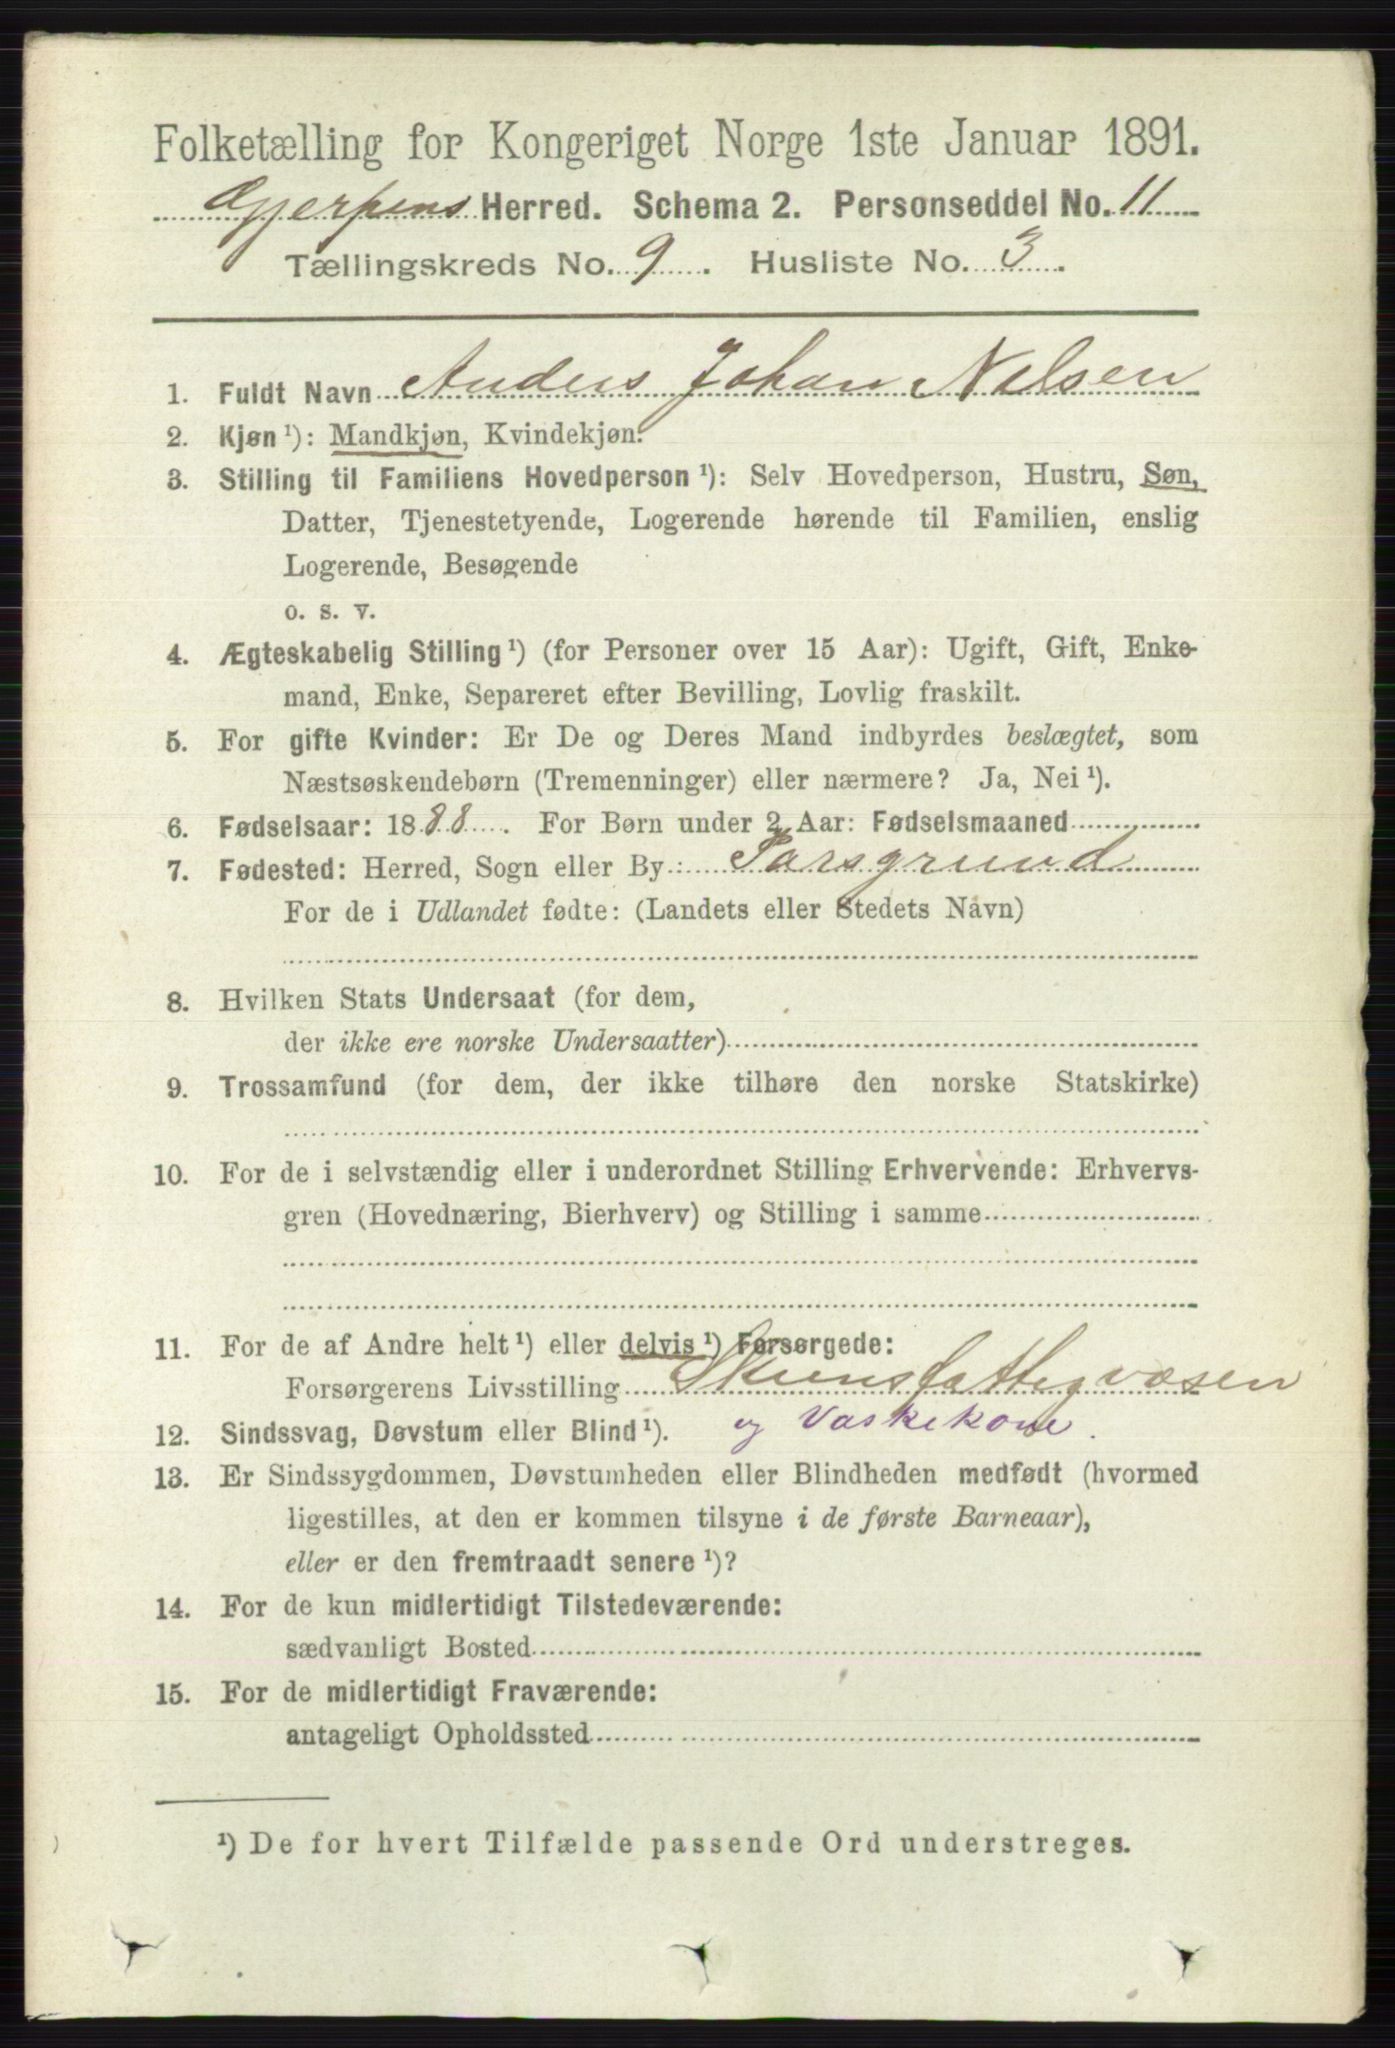 Folketælling for Kongeriget Norge 1ste Januar 1891.
Gjerpens Herred. Schema 2. Personseddel No. 11
Tællingskreds No. 9. Husliste No. 3.
1. Fuldt Navn Anders Johan Nilsen
2. Kjøn ¹): Mandkjøn, Kvindekjøn.
3. Stilling til Familiens Hovedperson ¹): Selv Hovedperson, Hustru, Søn,
Datter, Tjenestetyende, Logerende hørende til Familien, enslig
Logerende, Besøgende
o. s. v.
4. Ægteskabelig Stilling ¹) (for Personer over 15 Aar): Ugift, Gift, Enke-
mand, Enke, Separeret efter Bevilling, Lovlig fraskilt.
5. For gifte Kvinder: Er De og Deres Mand indbyrdes beslægtet, som
Næstsøskendebørn (Tremenninger) eller nærmere? Ja, Nei ¹).
6. Fødselsaar: 1888. For Børn under 2 Aar: Fødselsmaaned
7. Fødested: Herred, Sogn eller By: Porsgrund
For de i Udlandet fødte: (Landets eller Stedets Navn)
8. Hvilken Stats Undersaat (for dem,
der ikke ere norske Undersaatter)
9. Trossamfund (for dem, der ikke tilhøre den norske Statskirke)
10. For de i selvstændig eller i underordnet Stilling Erhvervende: Erhvervs-
gren (Hovednæring, Bierhverv) og Stilling i samme
11. For de af Andre helt ¹) eller delvis ¹) Forsørgede:
Forsørgerens Livsstilling Skiensfattigvæsen
12. Sindssvag, Døvstum eller Blind ¹). og Vaskekone.
13. Er Sindssygdommen, Døvstumheden eller Blindheden medfødt (hvormed
ligestilles, at den er kommen tilsyne i de første Barneaar),
eller er den fremtraadt senere ¹)?
14. For de kun midlertidigt Tilstedeværende:
sædvanligt Bosted
15. For de midlertidigt Fraværende:
antageligt Opholdssted
¹) De for hvert Tilfælde passende Ord understreges.